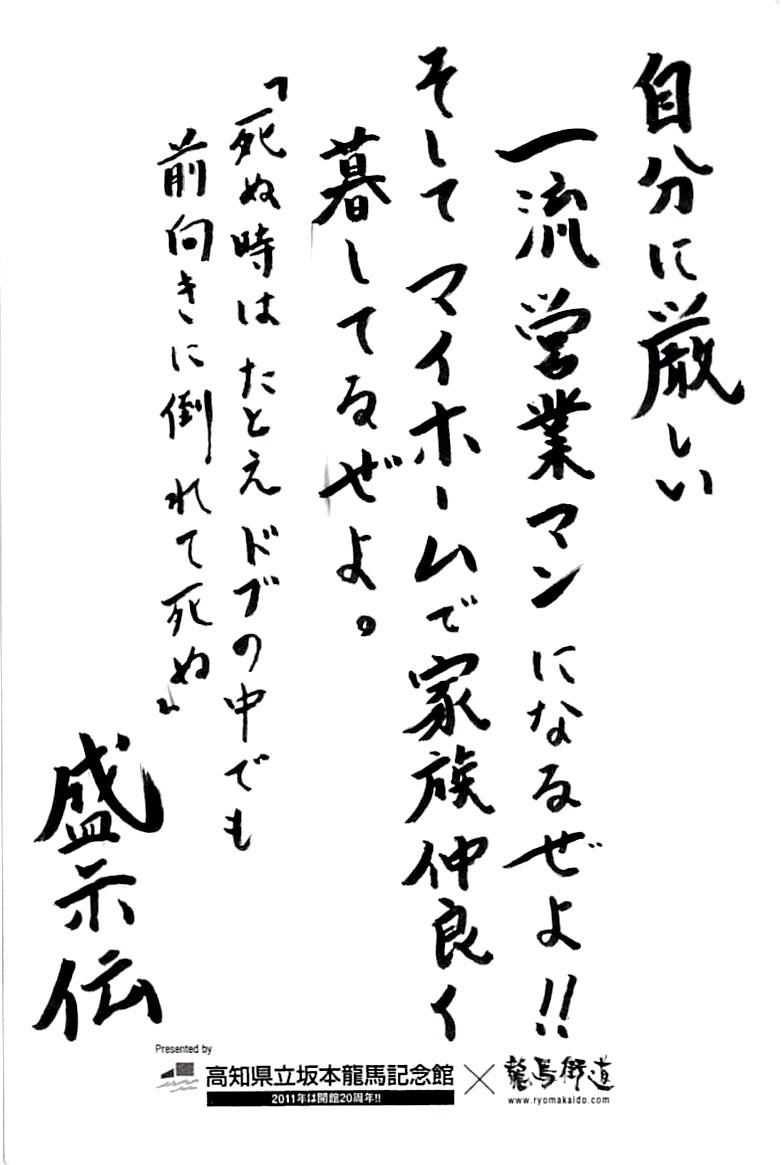 自分に厳しい
一流営業マンになるぜよ!!
そして マイホームで家族仲良く
暮してるぜよ。
「死ぬ時は たとえ ドブの中でも
前向きに倒れて死ぬ」
盛示伝
Presented by
高知県立坂本龍馬記念館 × 龍馬街道
2011年は開館20周年!!
www.ryomakaido.com